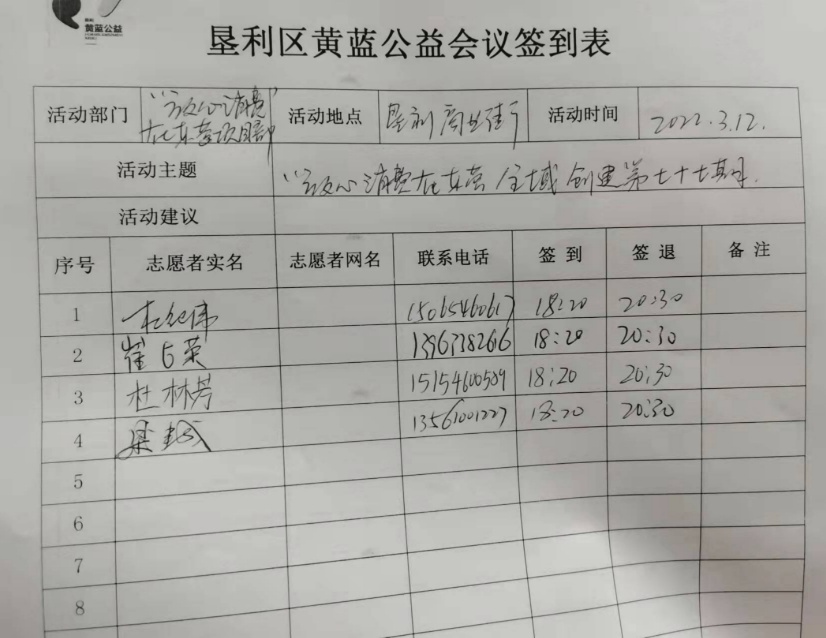 黄蓝公益
垦利区黄蓝公益会议签到表
活动部门 “放心消费 在东营项目部 活动地点 垦利商业街 活动时间 2022.3.12.
活动主题 “放心消费在东营 全域创建第七十七期
活动建议
序号 志愿者实名 志愿者网名 联系电话 签到 签退 备注
1 18:20 20:30
2 崔占荣 18:20 20:30
3 杜林芳 15154600589 18:20 20:30
4 梁 13561001227 18:20 20:30
5
6
7
8